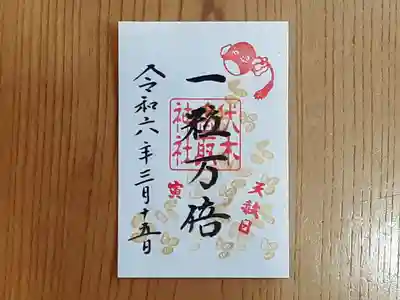 天赦日
一粒万倍
寅
伏木香取神社
令和六年三月十五日